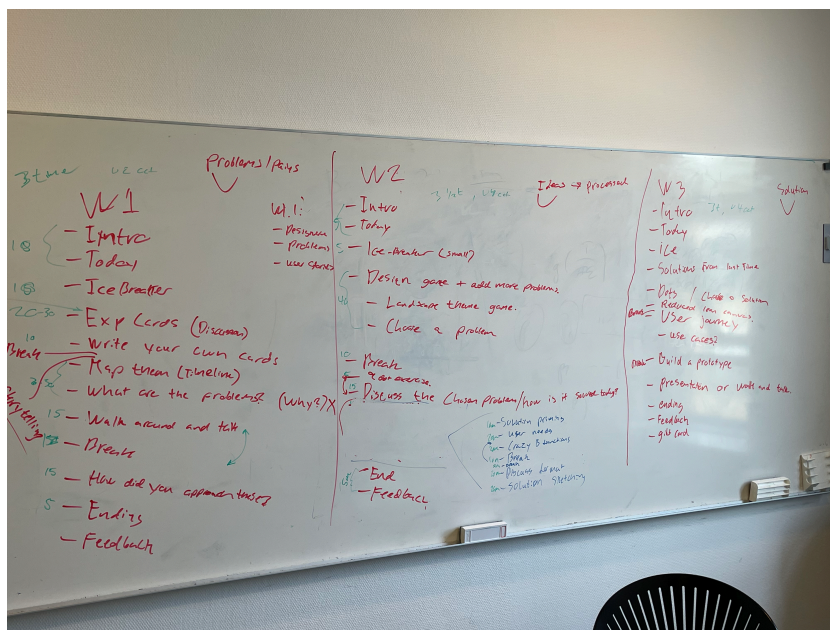 Problems/Pains
W1
10
- Intro
- Today
10
- Ice Breaker
20-30
- Exp Cards (Discussion)
10
Break
- Write your own cards
- Map them (Timeline)
- What are the problems? (Why?)
Storytelling
15
- Walk around and talk
- Break
15
- How did you approach these?
5
- Ending
- Feedback
W.1:
- Designer
- Problems
- User stories
W2
Ideas → processed
- Intro
5
- Today
5
- Ice-Breaker (small)
- Design game + add more problems.
40
- Landscape theme game.
- Chose a problem
10
- Break
15
- Discuss the Chosen problem/how is it solved today?
- Solution priming
- User needs
- Crazy 8
- Break
- Discuss format
- Solution sketching
- End
- Feedback
W3
Solution
- Intro
- Today
- Ice
- Solutions from last time
- Dots / Chose a solution
- Reduced lean canvas.
Break
- User journey
- use cases?
- Build a prototype
- Presentation or walk and talk.
- ending
- Feedback
- gift card